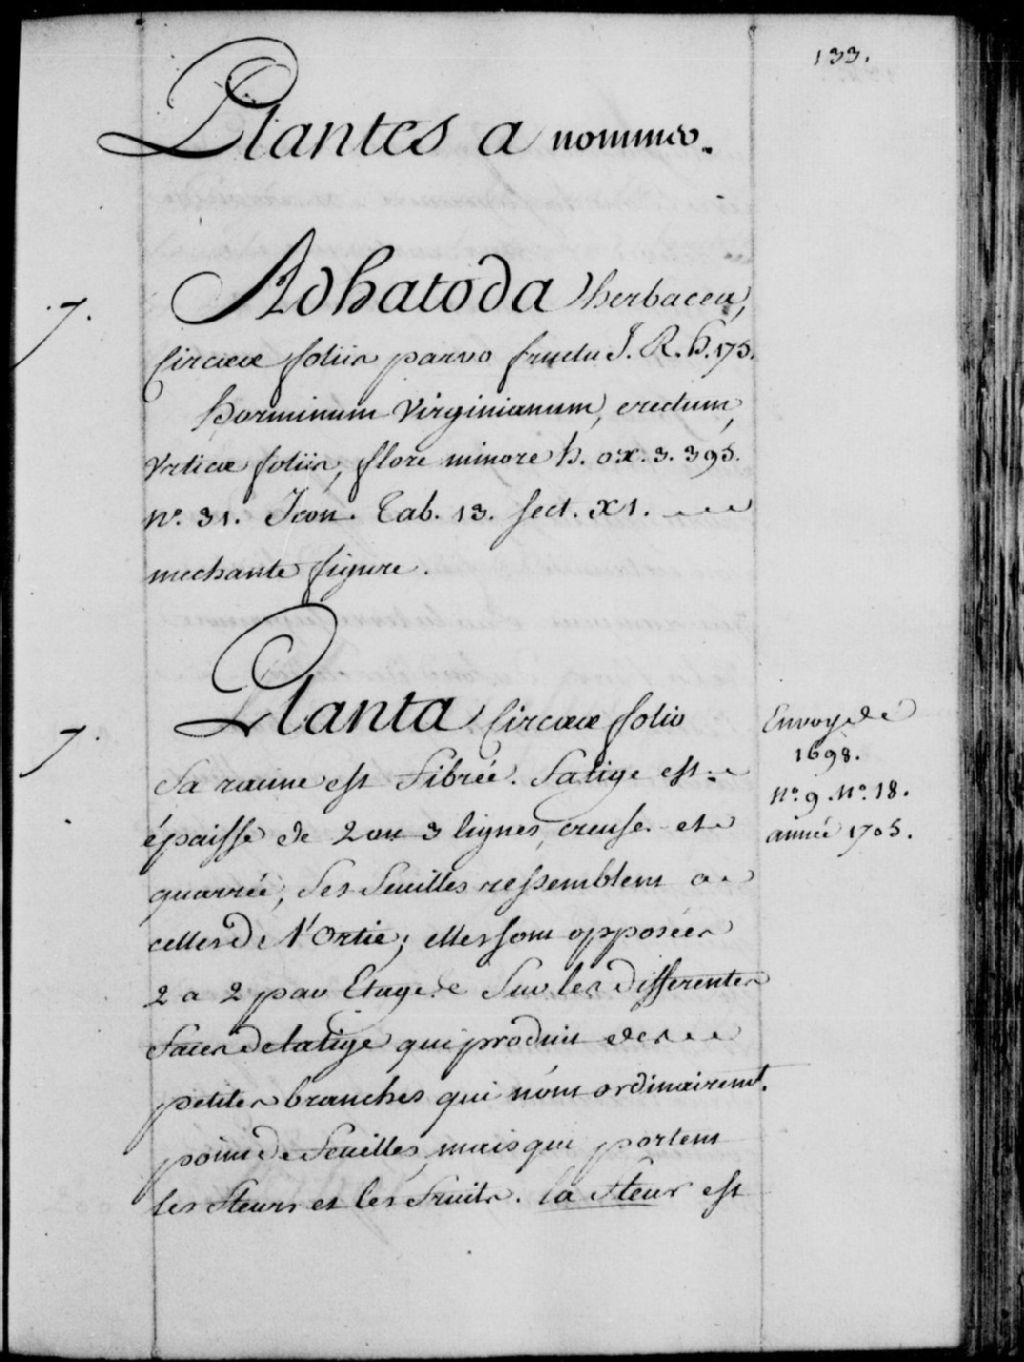 133.
Plantes a nommer.
7.
Adhatoda herbacea,
Circææ foliis parvo fructu J. R. h. 175.
horminum Virginianum, erectum,
Vrticæ foliis, flore minore h. ox. 3. 395.
nº. 31. Icon. Tab. 13. sect. X1.
mechante figure.
7.
Planta Circææ folio
Sa racine est Fibrée. Sa tige est
épaisse de 2 ou 3 lignes, creuse et
quarrée, Ses Feuilles ressemblent a
celles de l'Ortie; elles sont opposées
2 a 2 par Etage Sur les differentes
Faces de la tige qui produit des
petites branches qui n'ont ordinairemt.
point de Feuilles, mais qui portent
les Fleurs et les Fruits. la Fleur est
Envoy de
1698.
nº. 9. Nº. 18.
année 1705.